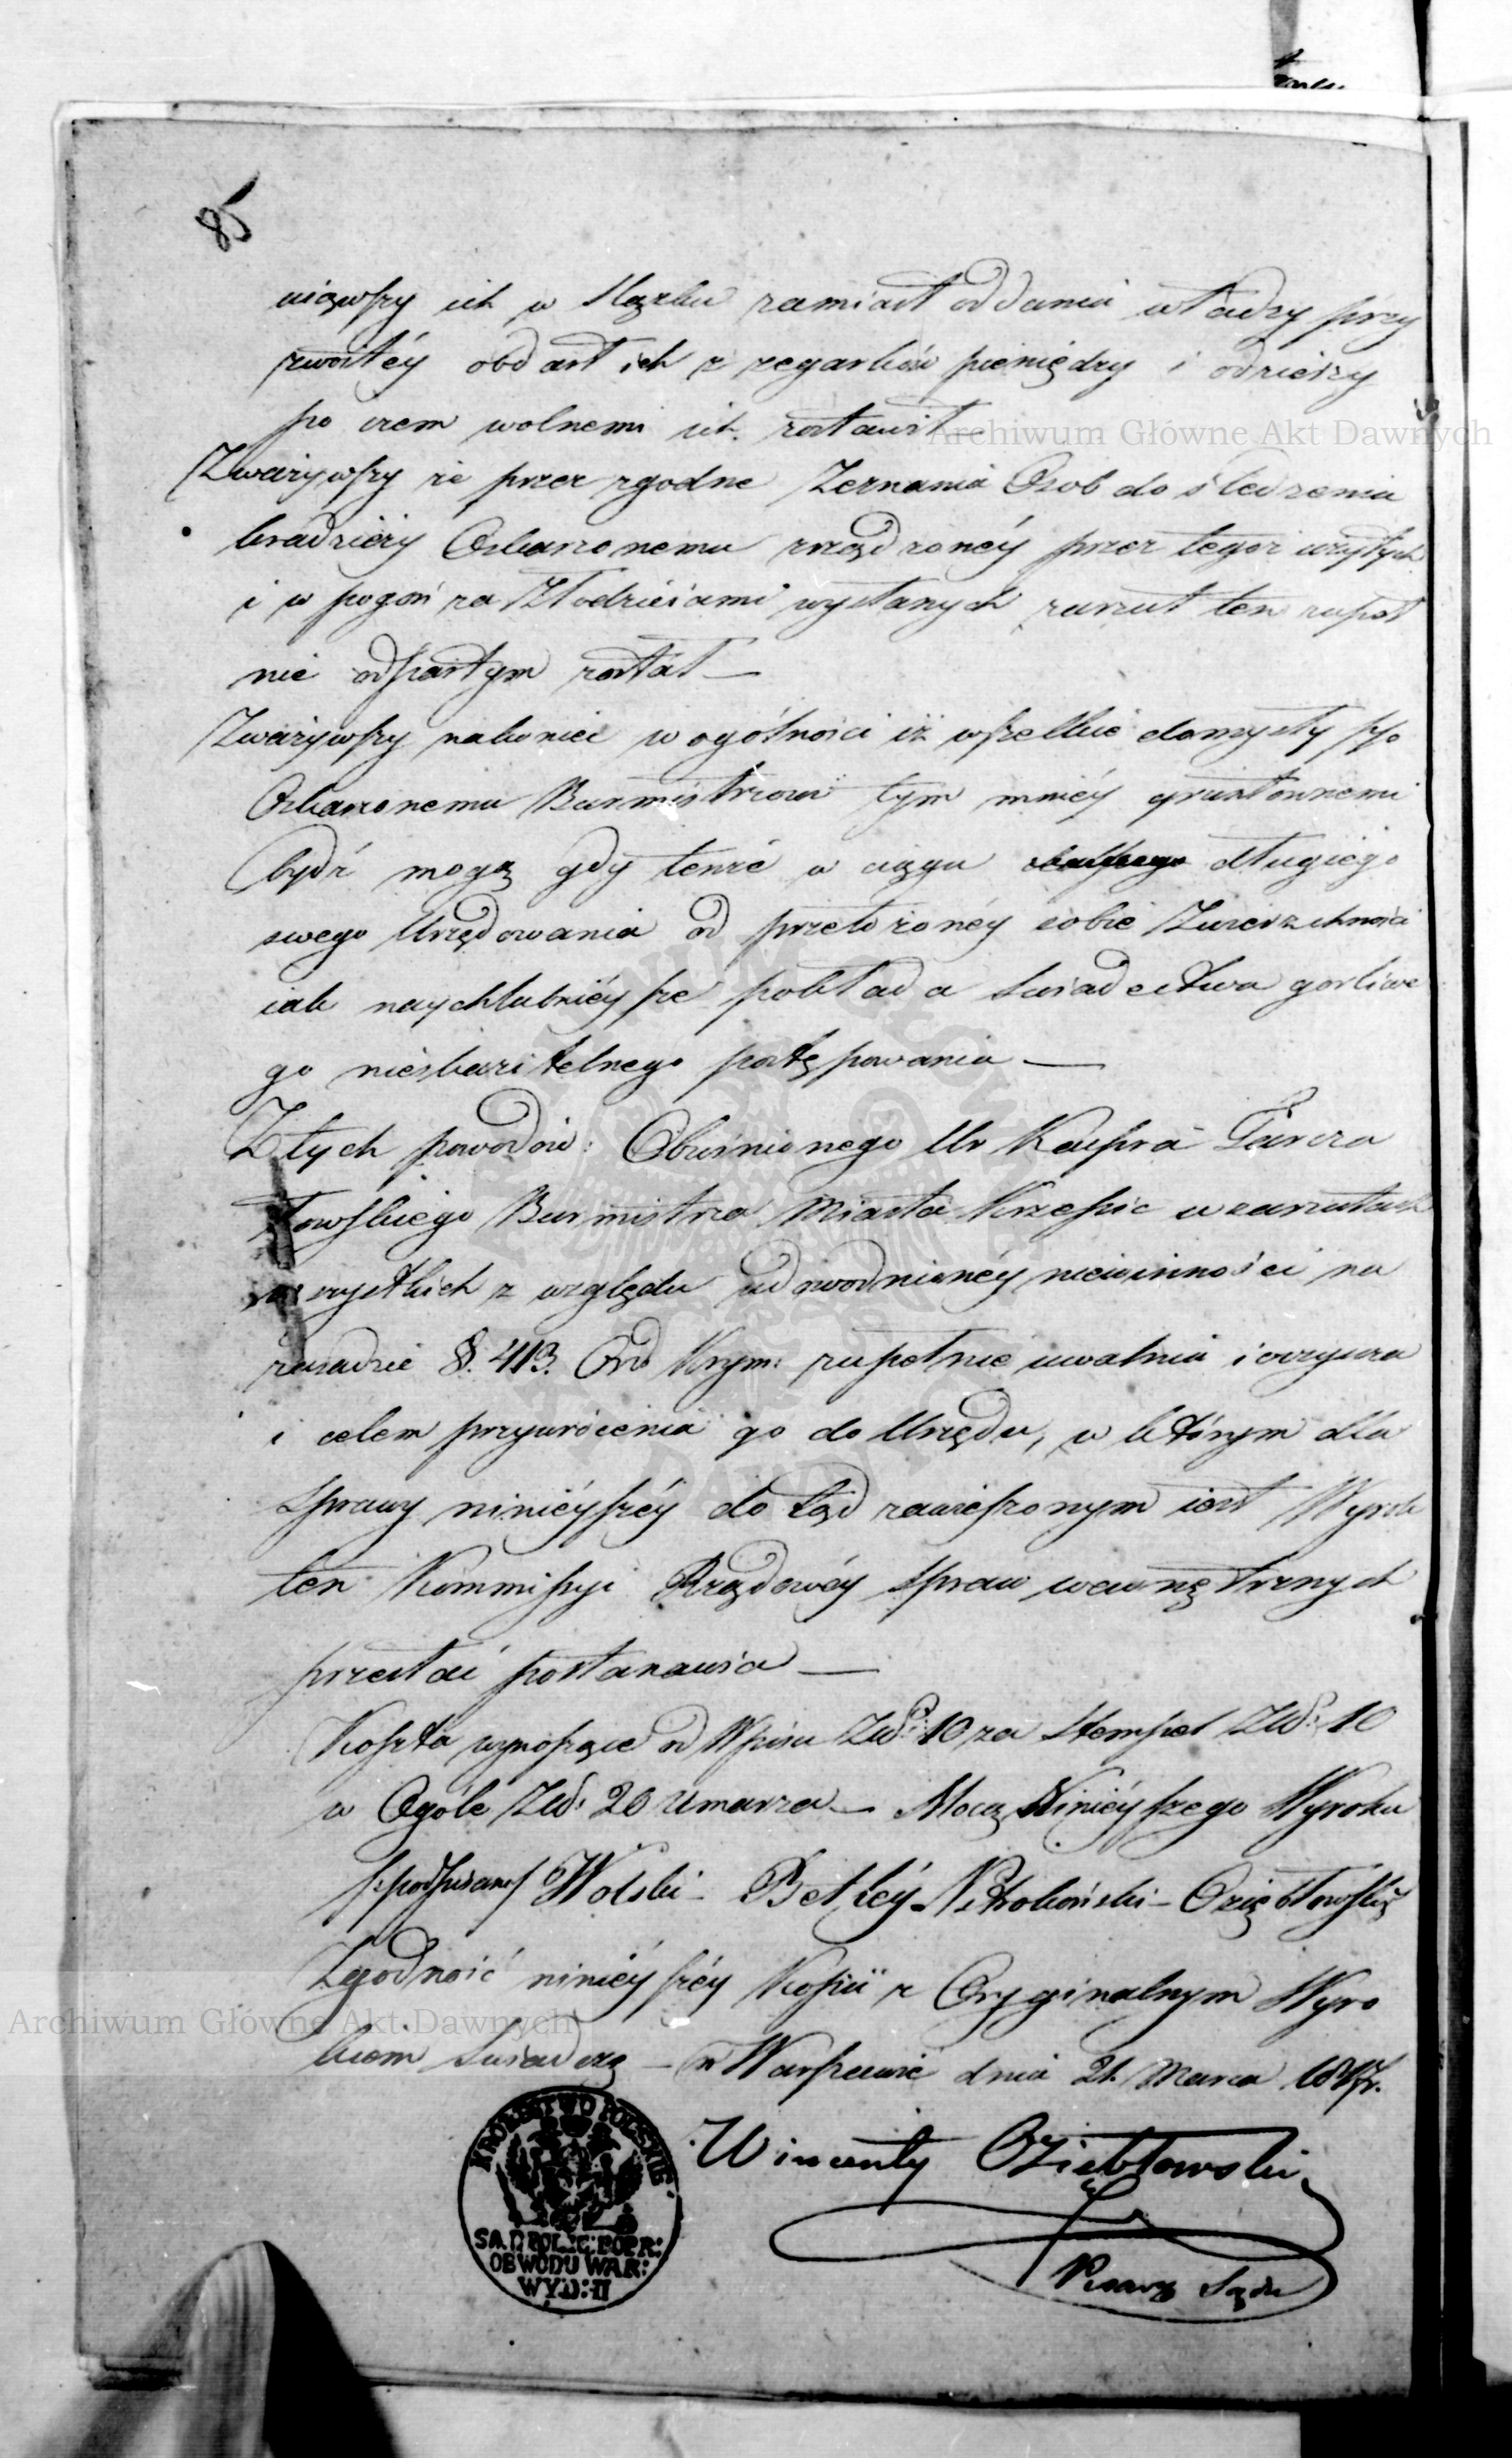 85
ująwszy ich w Slązku zamiast oddania władzy przy
zwoitéy obdart ich z zegarków pieniędzy i odzieży
po czem wolnemi ich zostawił
Zważywszy że przez zgodne Zeznania Osob do sledzenia
kradzieży Oskarżonemu rządzonéy przez tegoż użytych
i w pogoń za Złodzieiami wysłanych zarzut ten zupeł
nie odpartym został —
Zważywszy nakoniec w ogólności iż wszelkie domysły p/ko
Oskarżonemu Burmistrzowi tym mniéy gruntownemi
bydź mogą gdy tenże w ciągu długiego
swego Urzędowania od przełożonéy sobie Zwierzchności
iak naychlubniéysze pokłada świadectwa gorliwe
go nieskazitelnego postępowania —
Z tych powodów: Obwinionego Ur Kaspra Garcza
rowskiego Burmistrza Miasta Krzepic w zarzutach
wszystkich z względu udowodnionéy niewinności na
zasadzie §. 413. Ord Krym: zupełnie uwalnia i oczyszcza
i celem przywrócenia go do Urzędu, w którym dla
sprawy ninieyszéy do tąd zawieszonym iest Wyrok
ten Kommissyi Rządowéy Spraw wewnętrznych
przesłać postanawia —
Koszta wynoszące od Wpisu Złp: 10 za stempel Złp: 10
w Ogóle Złp: 20 umarza — Mocą Ninieyszego Wyroku
/:podpisano/ Wolski - Betzléy - Ozięblowski
Zgodność ninieyszéy Kopii z Oryginalnym Wyro
kiem świadczę — w Warszawie dnia 21. Marca
Wincenty Oziębłowski
Pisarz Sądu
KRÓLESTWO POLSKIE
SĄD POLIC: POPR:
OBWODU WAR:
WYD: II
Archiwum Główne Akt Dawnych
Archiwum Główne Akt Dawnych